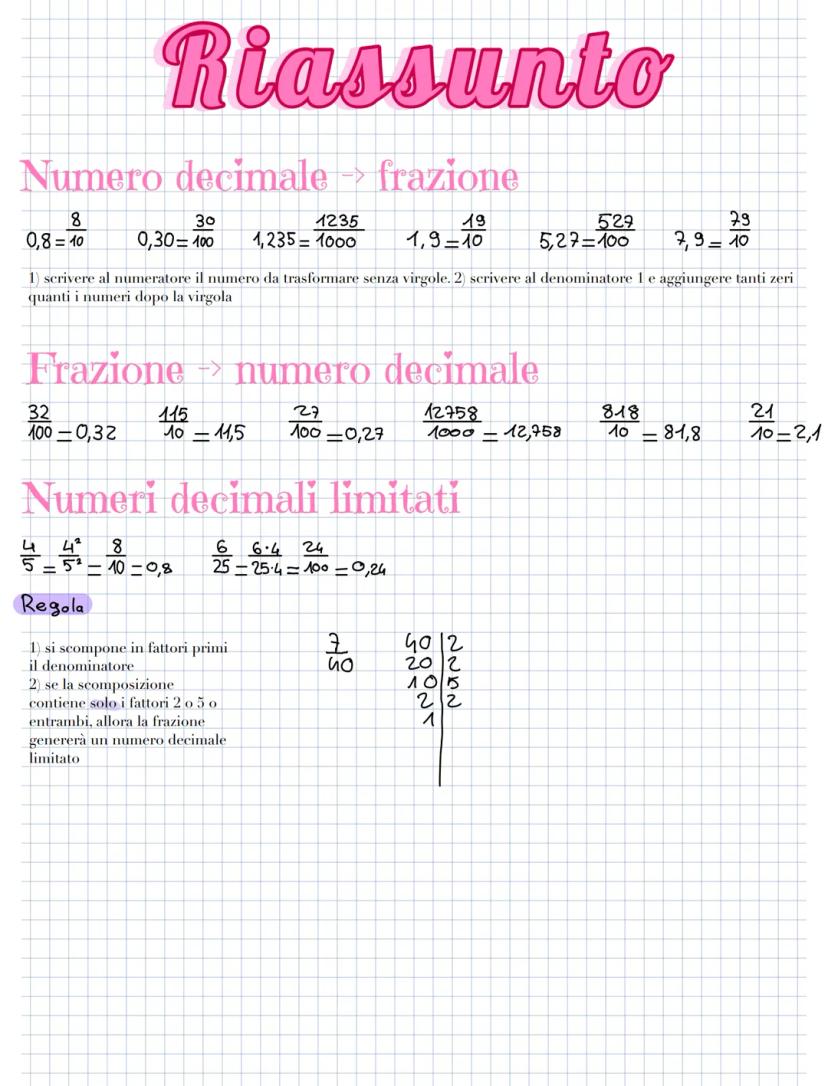 Riassunto
Numero decimale -> frazione
0,8 = 8/10 0,30 = 30/100 1,235 = 1235/1000 1,9 = 19/10 5,27 = 527/100 7,9 = 79/10
1) scrivere al numeratore il numero da trasformare senza virgole. 2) scrivere al denominatore 1 e aggiungere tanti zeri
quanti i numeri dopo la virgola
Frazione -> numero decimale
32/100 = 0,32 115/10 = 11,5 27/100 = 0,27 12758/1000 = 12,758 818/10 = 81,8 21/10 = 2,1
Numeri decimali limitati
4/5 = 4²/5² = 8/10 = 0,8 6/25 = 6·4/25·4 = 24/100 = 0,24
Regola
1) si scompone in fattori primi
il denominatore
2) se la scomposizione
contiene solo i fattori 2 o 5 o
entrambi, allora la frazione
genererà un numero decimale
limitato
7/40
40 | 2
20 | 2
10 | 5
2 | 2
1 |